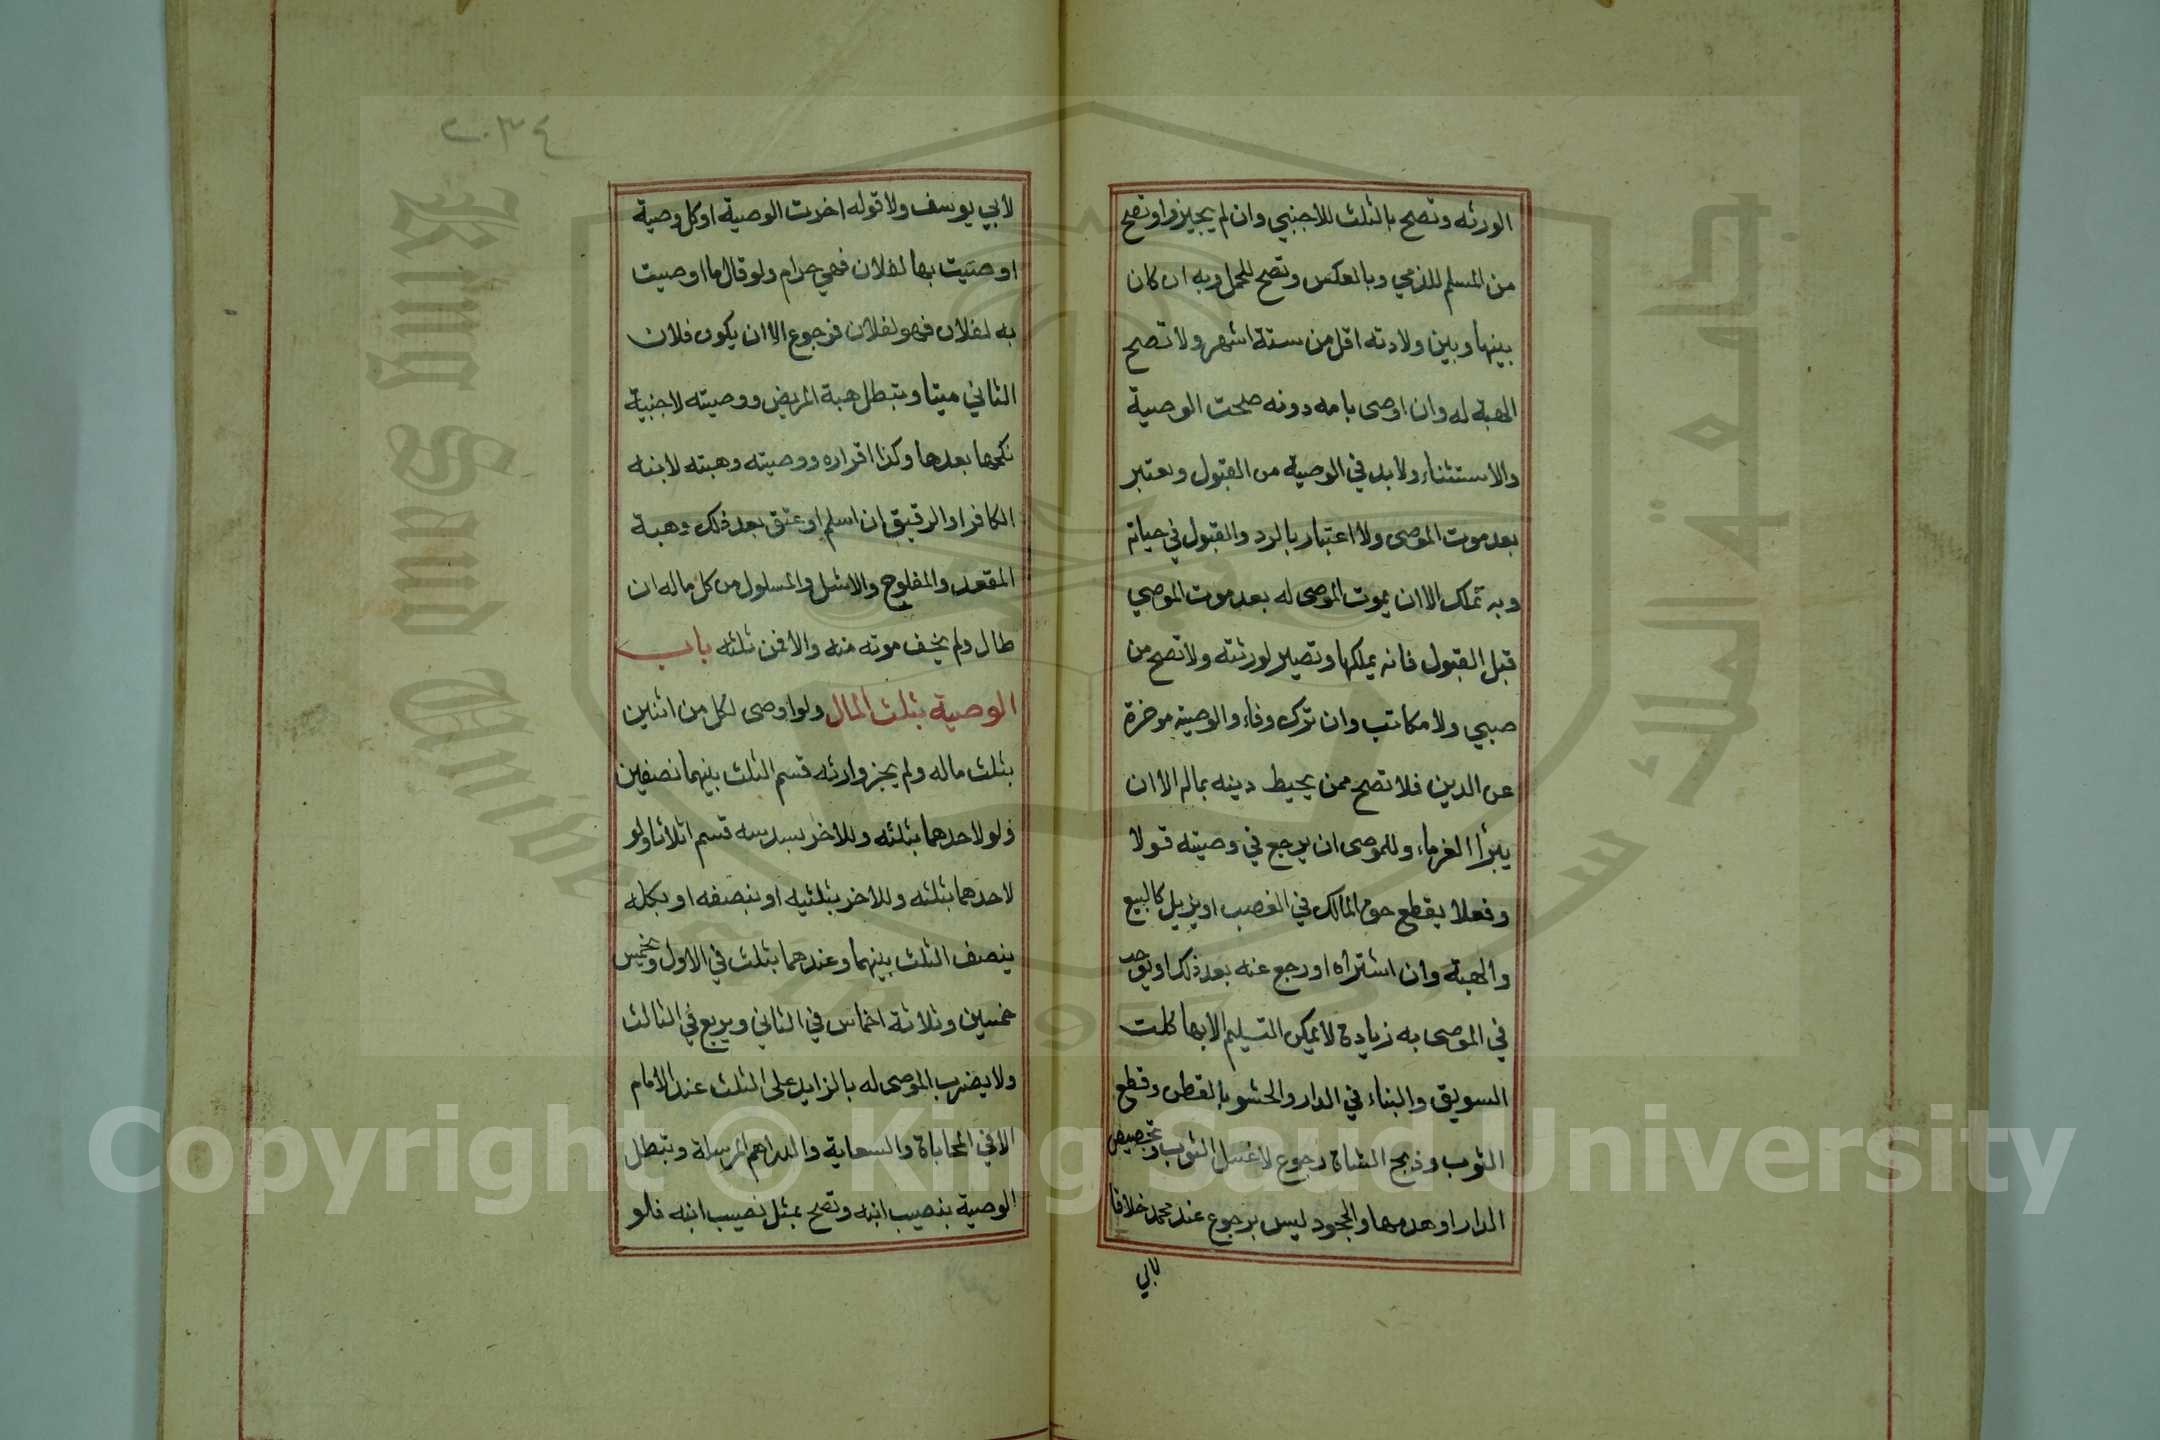 الورثه وتصح بالثلث للاجنبي وان لم يجيزوا وتصح
من المسلم للذمي وبالعكس وتصح للحمل وبه ان كان
بينها وبين ولادته اقل من ستة اشهر ولا تصح
الهبة له وان اوصى بامه دونه صحت الوصية
والاستثناء ولا بد في الوصية من القبول ويعتبر
بعد موت الموصى ولا اعتبار بالرد والقبول في حياته
وبه تملك الا ان يموت الموصى له بعد موت الموصي
قبل القبول فانه يملكها وتصير لورثته ولا تصح من
صبي ولا مكاتب وان ترك وفاء والوصية موخرة
عن الدين فلا تصح ممن يحيط دينه بماله الا ان
يبرأ الغرماء وللموصى ان يرجع في وصيته قولا
وفعلا يقطع حق المالك في الغصب او يزيل كالبيع
والهبة وان اشتراه او رجع عنه بعد ذلك او يوجد
في الموصى به زيادة لا يمكن التسليم الا بها كلت
السويق والبناء في الدار والحشو بالقطن وقطع
الثوب وذبح الشاة رجوع لا غسل الثوب وتجصيص
الدار او هدمها والجحود ليس برجوع عند محمد خلافا
لابي
٢٠٣٤
لابي يوسف ولا قوله اخرت الوصية او كل وصية
اوصيت بها لفلان فهي حرام ولو قال ما اوصيت
به لفلان فهو لفلان فرجوع الا ان يكون فلان
الثاني ميتا وتبطل هبة المريض ووصيته لاجنبية
نكحها بعدها وكذا اقراره ووصيته وهبته لابنه
الكافر او الرقيق ان اسلم او عتق بعد ذلك وهبة
المقعد والمفلوج والاشل والمسلول من كل ماله ان
طال ولم يخف موته منه والا فمن ثلثه باب
الوصية بثلث المال ولو اوصى لكل من اثنين
بثلث ماله ولم يجز وارثه قسم الثلث بينهما نصفين
ولو لاحدهما بثلثه وللاخر بسدسه قسم اثلاثا ولو
لاحدهما بثلثه وللاخر بثلثيه او بنصفه او بكله
ينصف الثلث بينهما وعندهما بثلث في الاول وبخمس
خمسين وثلاثة اخماس في الثاني ويربع في الثالث
ولا يضرب الموصى له بالزايد على الثلث عند الامام
الا في المحاباة والسعاية والدراهم المرسلة وتبطل
الوصية بنصيب ابنه وتصح بمثل نصيب ابنه فلو
Copyright © King Saud University